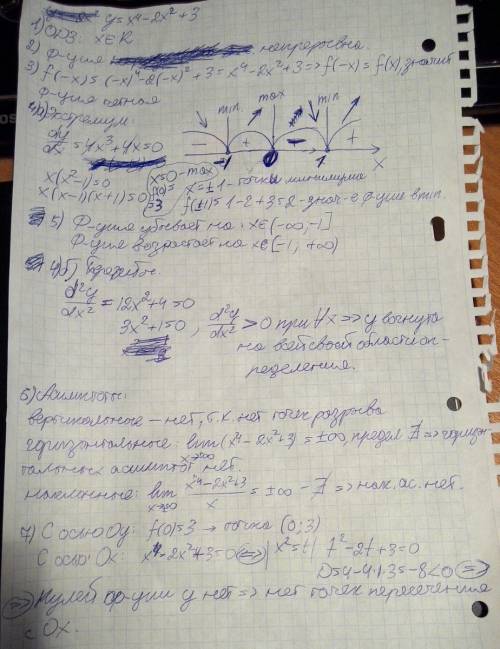 y = x⁴ - 2x² + 3
1) ОДЗ: x∈R
2) Ф-ция непрерывна.
3) f(-x) = (-x)⁴ - 2(-x)² + 3 = x⁴ - 2x² + 3 => f(-x) = f(x), значит
ф-ция четная
Экстремум:
min max min
- + - +
-1 0 1 x
dy/dx = 4x³ + 4x = 0
x(x²-1) = 0
x(x-1)(x+1) = 0
x=0 - max
f(0) = 3
x = ±1 - точки минимума
f(±1) = 1 - 2 + 3 = 2 - знач-е ф-ции в min.
5) Ф-ция убывает на x∈(-∞,-1]
Ф-ция возрастает на x∈[-1, +∞)
4б)
d²y/dx² = 12x² + 4 = 0
3x² + 1 = 0, d²y/dx² > 0 при ∀x => y вогнута
на всей своей области оп-
ределения.
6) Асимптоты:
вертикальные - нет, т.к. нет точек разрыва
горизонтальные: lim x→∞ (x⁴ - 2x² + 3) = ±∞, предел ∄ => горизон-
тальных асимптот нет.
наклонные: lim x→∞ (x⁴ - 2x² + 3)/x = ±∞ - ∄ => нак. ас. нет.
7) С осью Oy: f(0) = 3 → точка (0; 3)
С осью Ox: x⁴ - 2x² + 3 = 0 <=> |x² = t| t² - 2t + 3 = 0
D = 4 - 4·1·3 = -8 < 0 <=>
<=> Нулей ф-ции y нет => нет точек пересечения
с Ox.